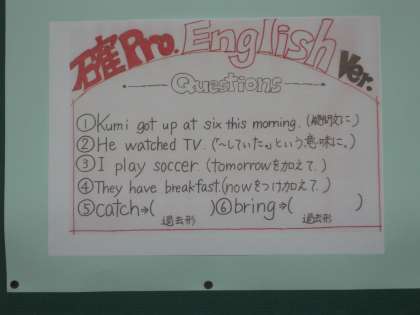 確Pro. English Ver.
Questions
①Kumi got up at six this morning. (疑問文に)
②He watched TV. (「~していた。」という意味に。)
③I play soccer. (tomorrowを加えて.)
④They have breakfast.(nowをつけ加えて.)
⑤catch⇒( ) ⑥bring⇒( )
過去形 過去形